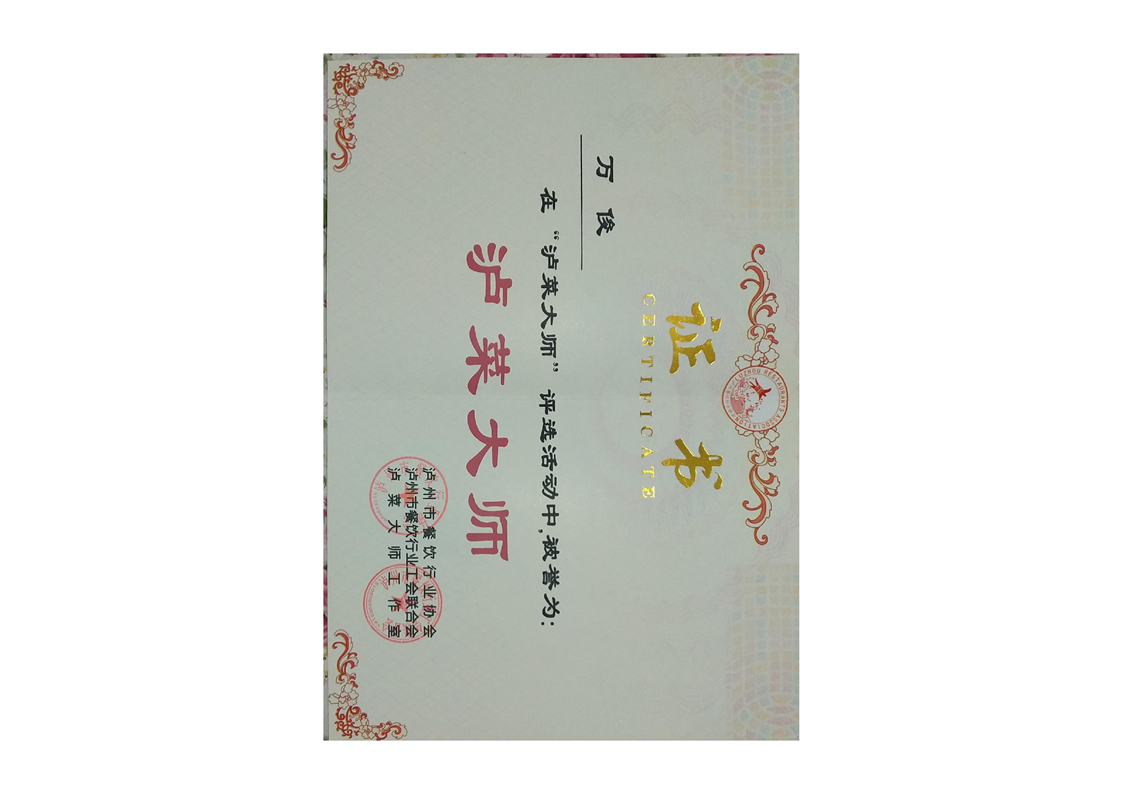 LUZHOU RESTAURANTS ASSOCIATION
证书
CERTIFICATE
万俊
在“泸菜大师”评选活动中,被誉为:
泸菜大师
泸州市餐饮行业协会
泸州市餐饮行业工会联合会
泸菜大师工作室